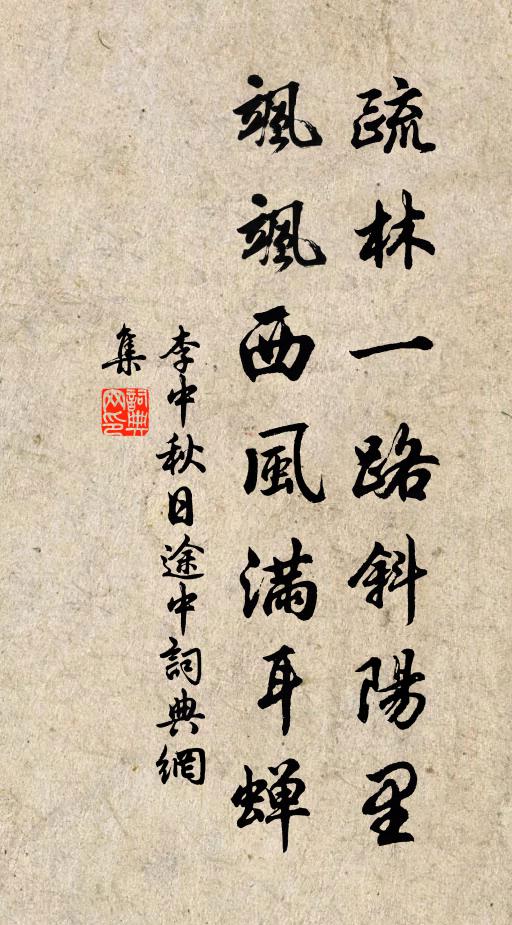 疏林一路斜陽里
颯颯西風滿耳蟬
李中秋日途中詞典網
集
詞典
网印